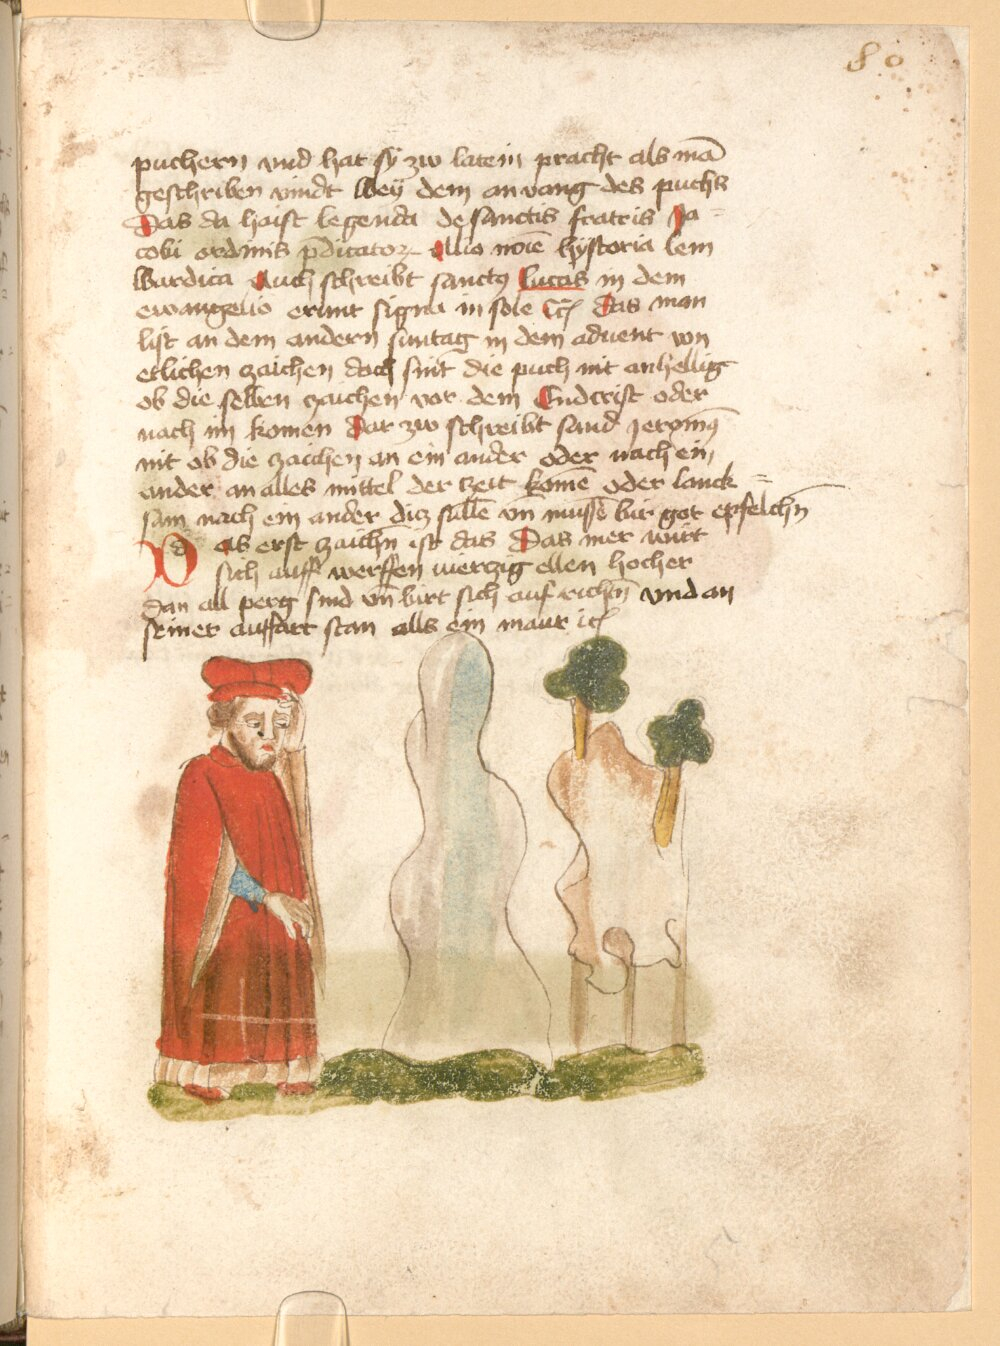 80
puchern vnd hat sy zw latein pracht als mā
geschriben vindt bey dem anvang des puchs
Das da haist legenda de sanctis fratris Ja
cobi ordinis p̄dicatoꝝ Alio noīe hystoria lom
bardica Auch schreibt sanctꝰ lucas in dem
ewangelio erunt signa in sole ꝛc̄ Das man
list an dem andern suntag in dem aduent von
etlichen zaichen doch sint die puch nit anhellig
ob die selben zaichen vor dem Endcrist oder
nach im komen Dar zw schreibt sand Jeronimꝰ
nit ob die zaichen an ein ander oder nach ein
ander an alles mittel der zeit komē oder lanck=
sam nach ein ander diz vn̄ muss bir got epfelchn̄
Das erst zaichn̄ ist das Das mer wirt
sich auff werffen vierczig ellen hocher
dan all perg sind vn̄ birt sich auf richn̄ vnd an
seiner auffart stan alls ein maur ꝛc̄